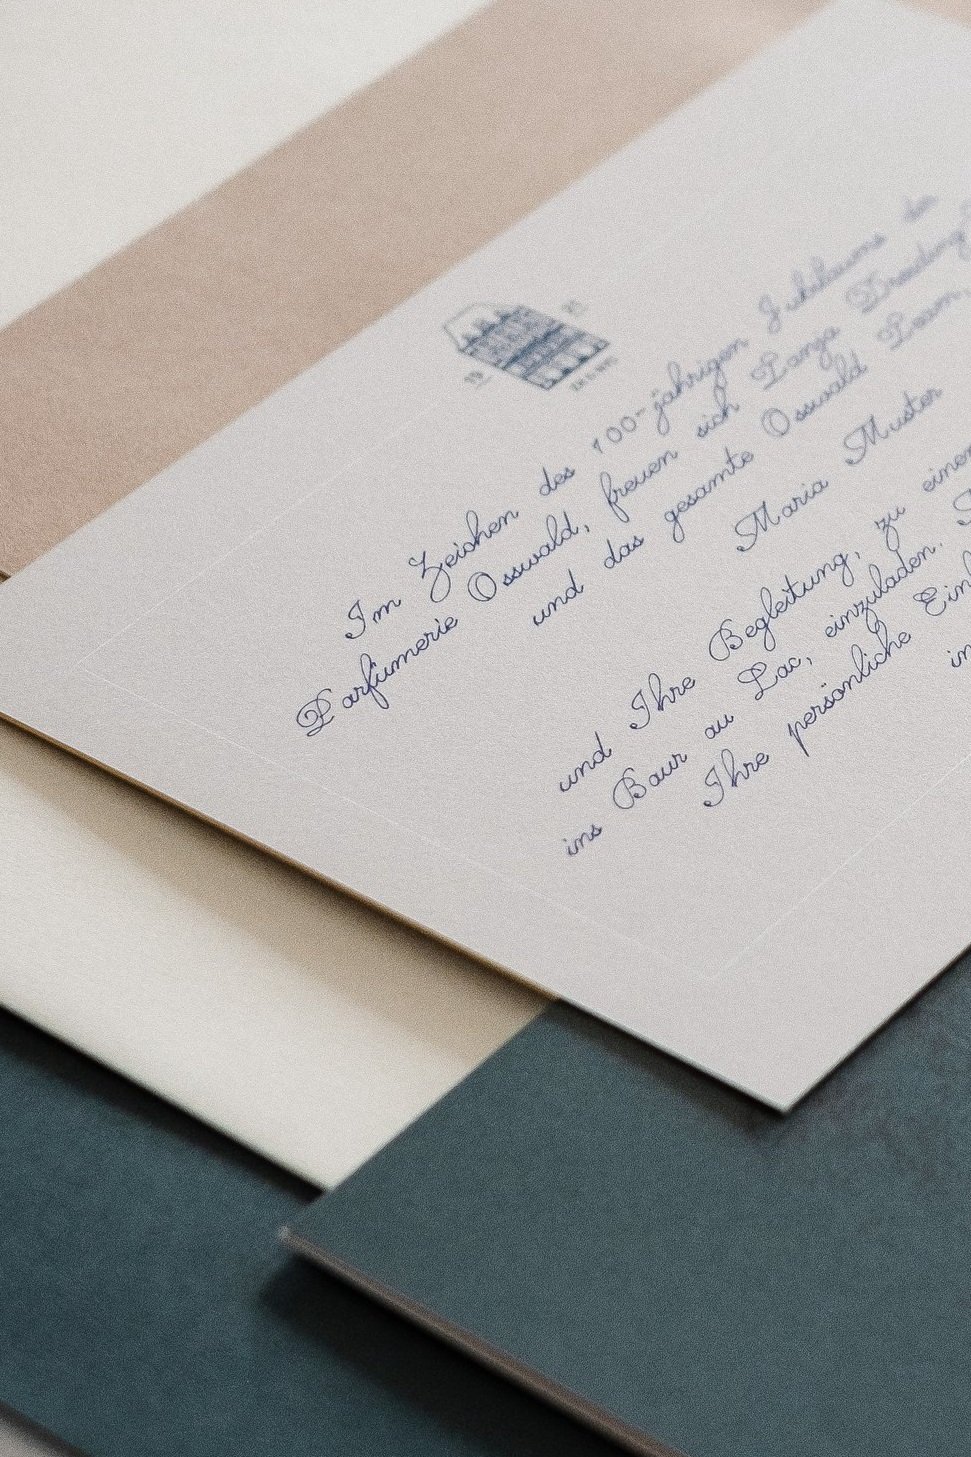 Im Zeichen des 100-jährigen Jubiläums der
Parfümerie Osswald, freuen sich Tanja Dreiding
und das gesamte Osswald Team,
Maria Muster
und Ihre Begleitung, zu einem
ins Baur au Lac, einzuladen.
Ihre persönliche